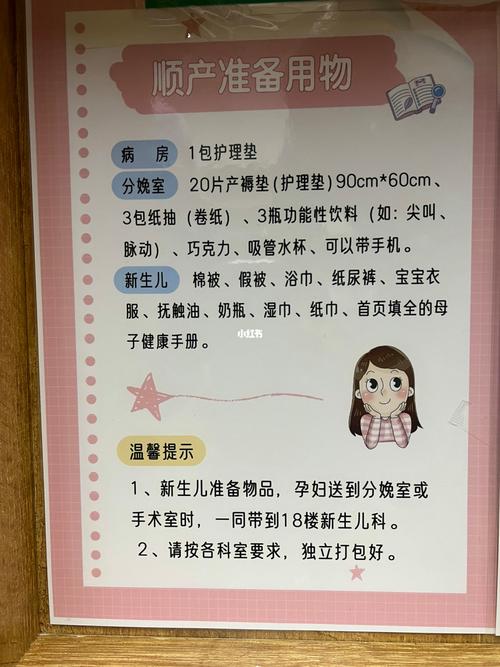 顺产准备用物
病 房 1包护理垫
分娩室 20片产褥垫(护理垫)90cm*60cm、
3包纸抽(卷纸)、3瓶功能性饮料(如:尖叫、
脉动)、巧克力、吸管水杯、可以带手机。
新生儿 棉被、假被、浴巾、纸尿裤、宝宝衣
服、抚触油、奶瓶、湿巾、纸巾、首页填全的母
子健康手册。
小红书
温馨提示
1、新生儿准备物品,孕妇送到分娩室或
手术室时,一同带到18楼新生儿科。
2、请按各科室要求,独立打包好。